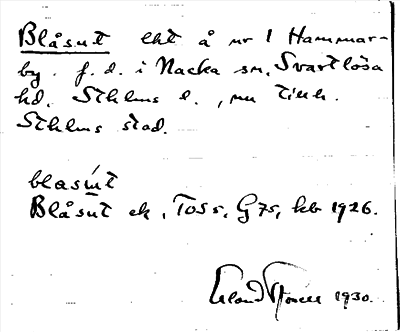 Blåsut lht å nr 1 Hammar-
by f. d. i Nacka sn, Svartlösa
hd. Sthlms l., nu tillh.
Sthlms stad.
blasut
Blåsut ek, Toss, G7s, kb 1926.
Erland 1930.